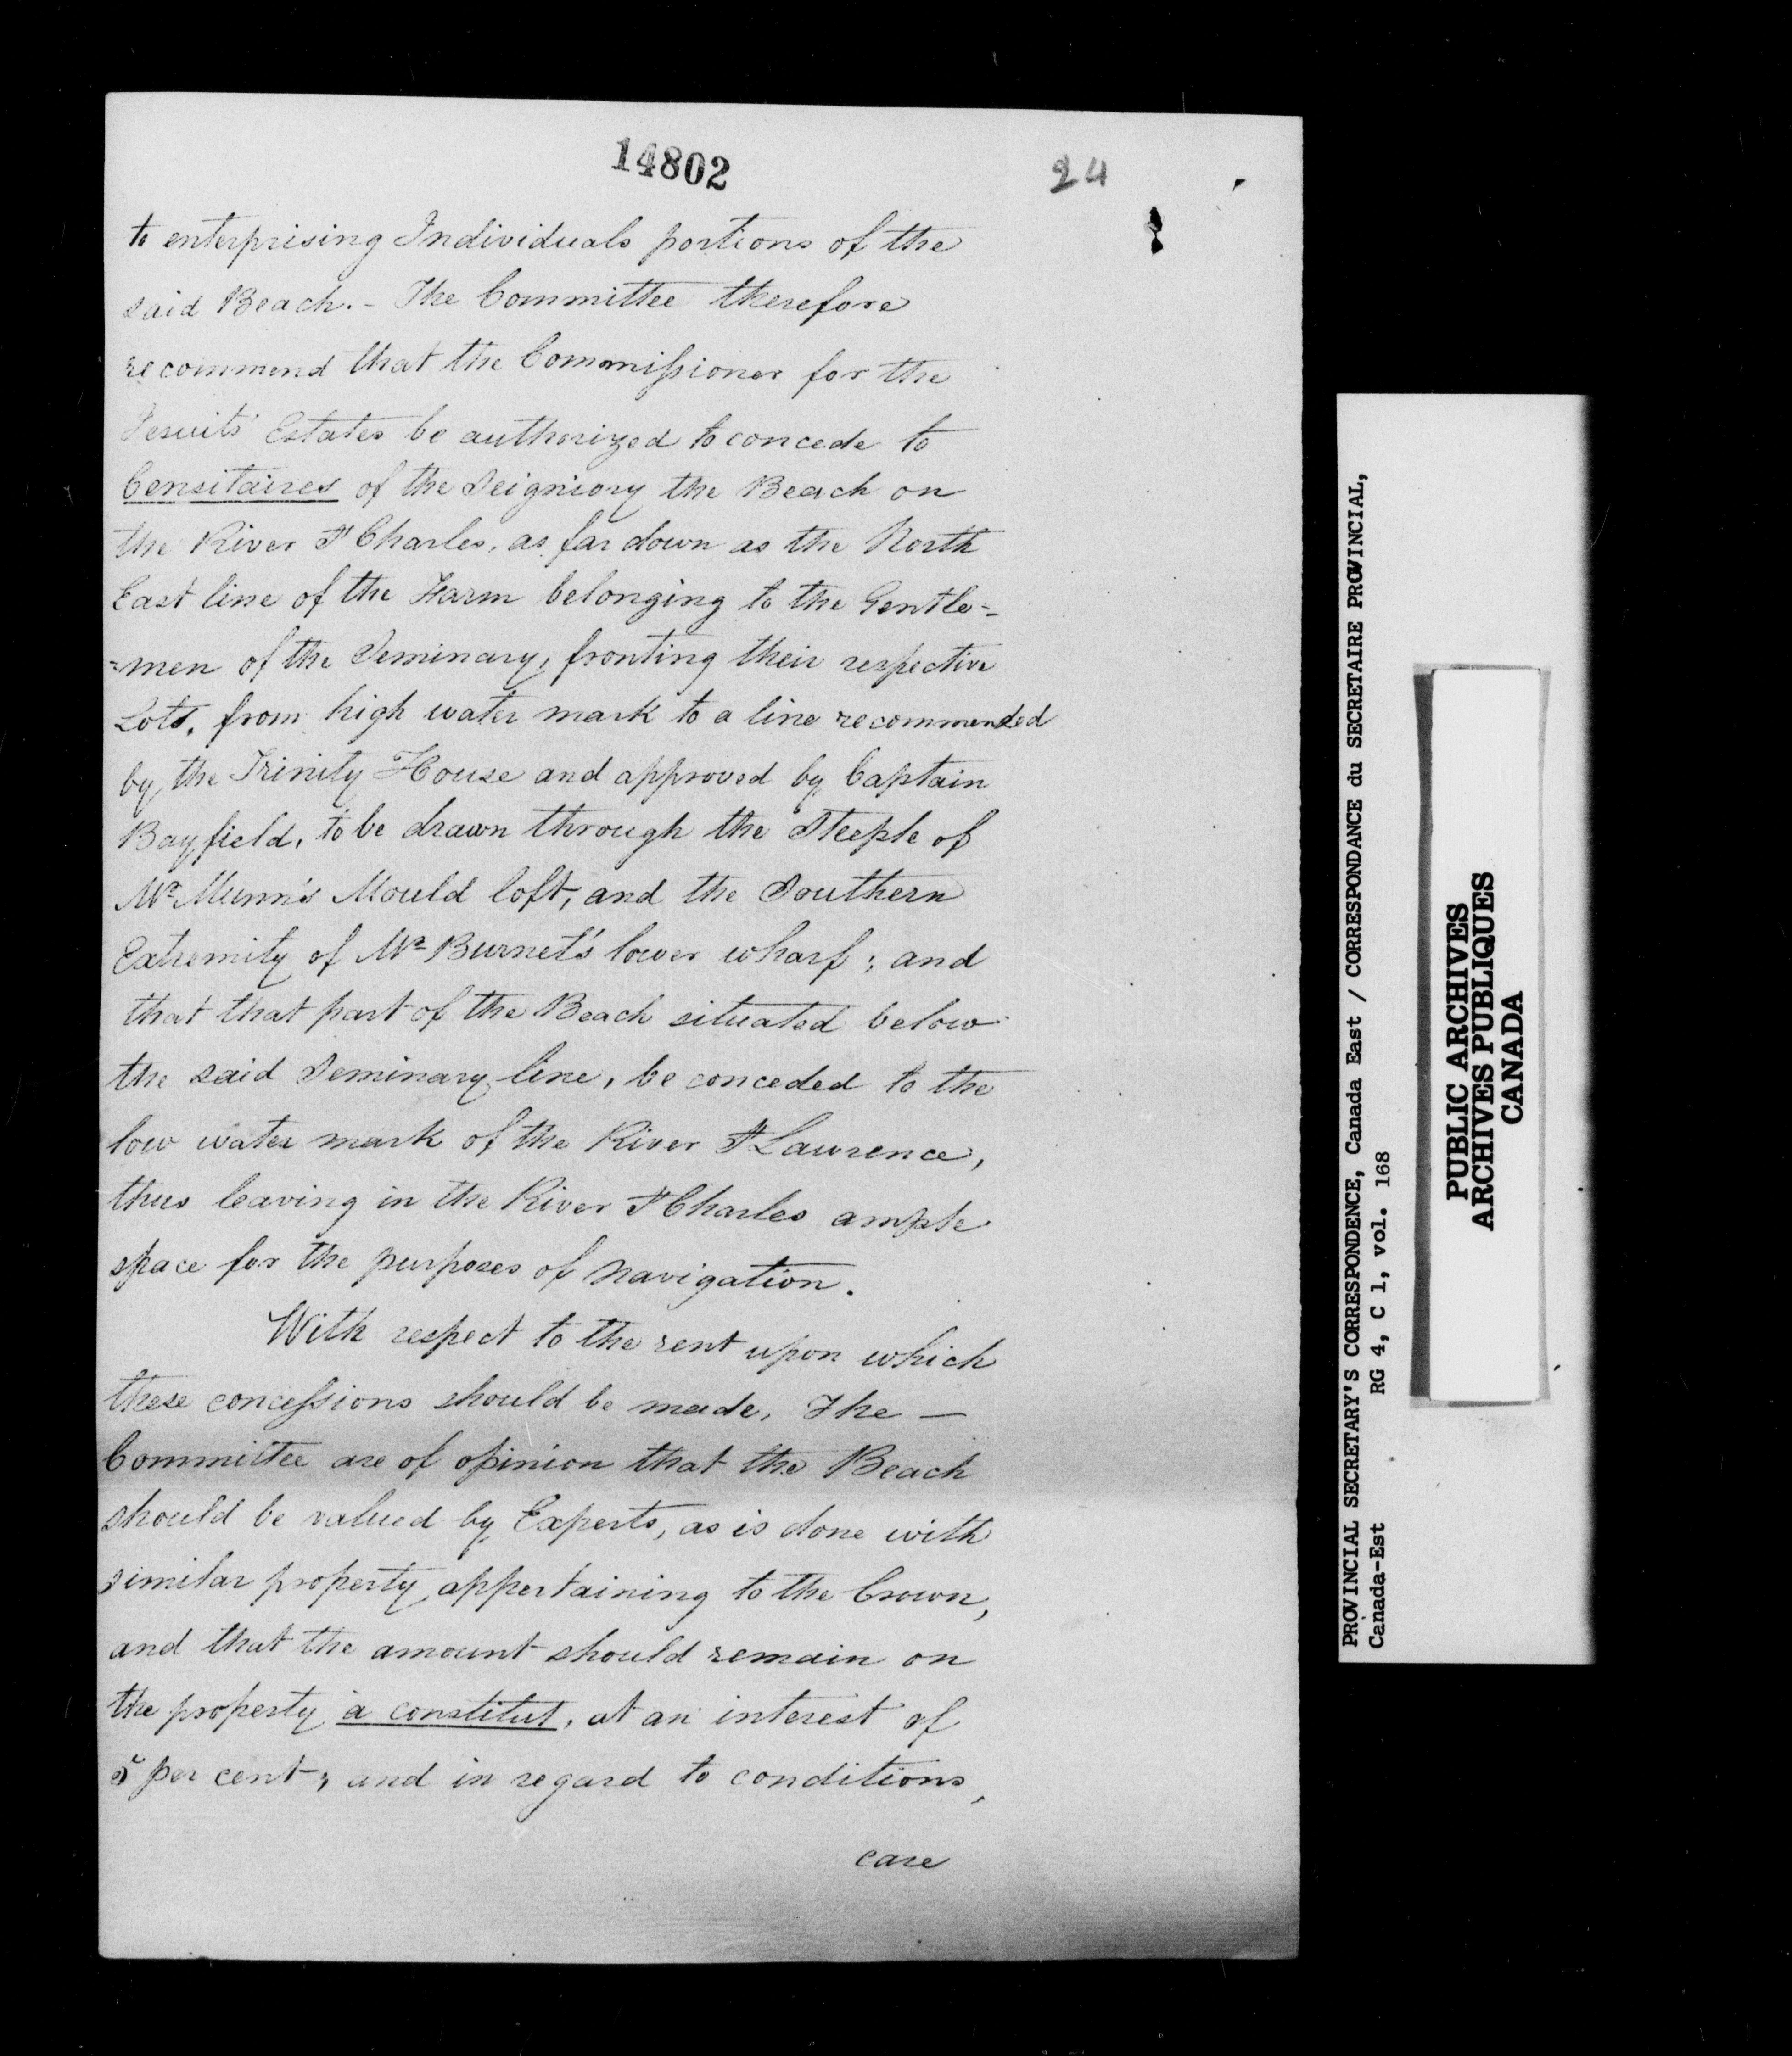 14802
24
to enterprising Individuals portions of the
said Beach. - The Committee therefore
recommend that the Commissioner for the
Jesuits' Estates be authorized to concede to
Censitaires of the Seigniory the Beach on
the River St Charles, as far down as the North
East line of the Farm belonging to the Gentle=
=men of the Seminary, fronting their respective
Lots, from high water mark to a line recommended
by the Trinity House and approved by Captain
Bayfield, to be drawn through the Steeple of
Mr Munn's Mould loft, and the Southern
Extremity of Mr Burnet's lower wharf; and
that that part of the Beach situated below
the said Seminary line, be conceded to the
low water mark of the River St Lawrence,
thus leaving in the River St Charles ample
space for the purposes of Navigation.
With respect to the rent upon which
these concessions should be made, The —
Committee are of opinion that the Beach
should be valued by Experts, as is done with
similar property appertaining to the Crown,
and that the amount should remain on
the property à constitut, at an interest of
5 per cent; and in regard to conditions,
care
PROVINCIAL SECRETARY'S CORRESPONDENCE, Canada East / CORRESPONDANCE du SECRETAIRE PROVINCIAL,
Canada-Est RG 4, C 1, vol. 168
PUBLIC ARCHIVES
ARCHIVES PUBLIQUES
CANADA